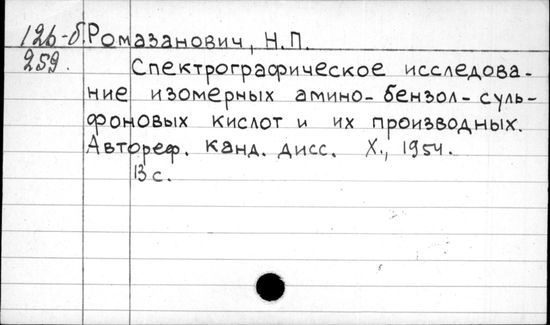 126-б. Ромазанович, Н.П.
259.
Спектрографическое исследова-
ние изомерных амино-бензол-суль-
фоновых кислот и их производных.
Автореф. канд. дисс. Х., 1954.
13 с.